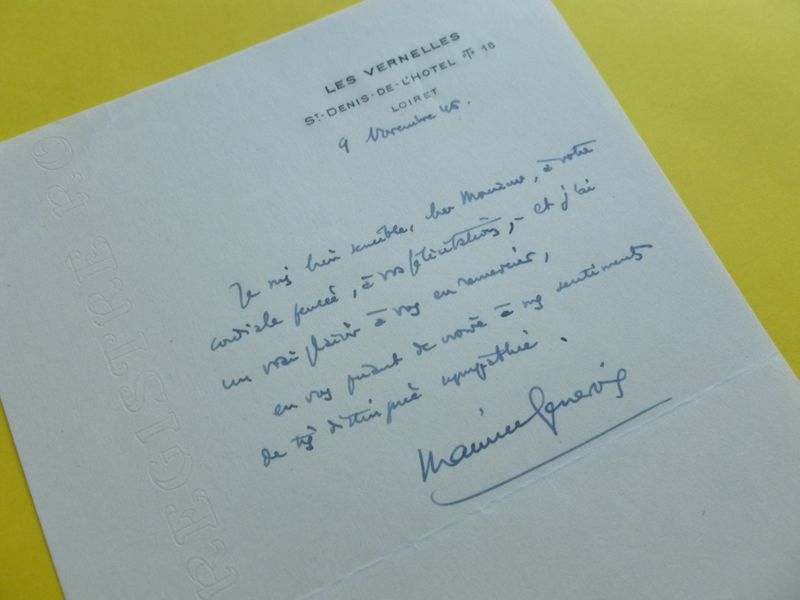 LES VERNELLES
ST-DENIS-DE-L'HOTEL T 18
LOIRET
9 Novembre 46.
Je suis bien sensible, cher Monsieur, à votre
cordiale pensée, à vos félicitations, - et j'ai
un vrai plaisir à vous en remercier,
en vous priant de croire à mes sentiments
de très distinguée sympathie.
Maurice Genevoix
REGISTRE